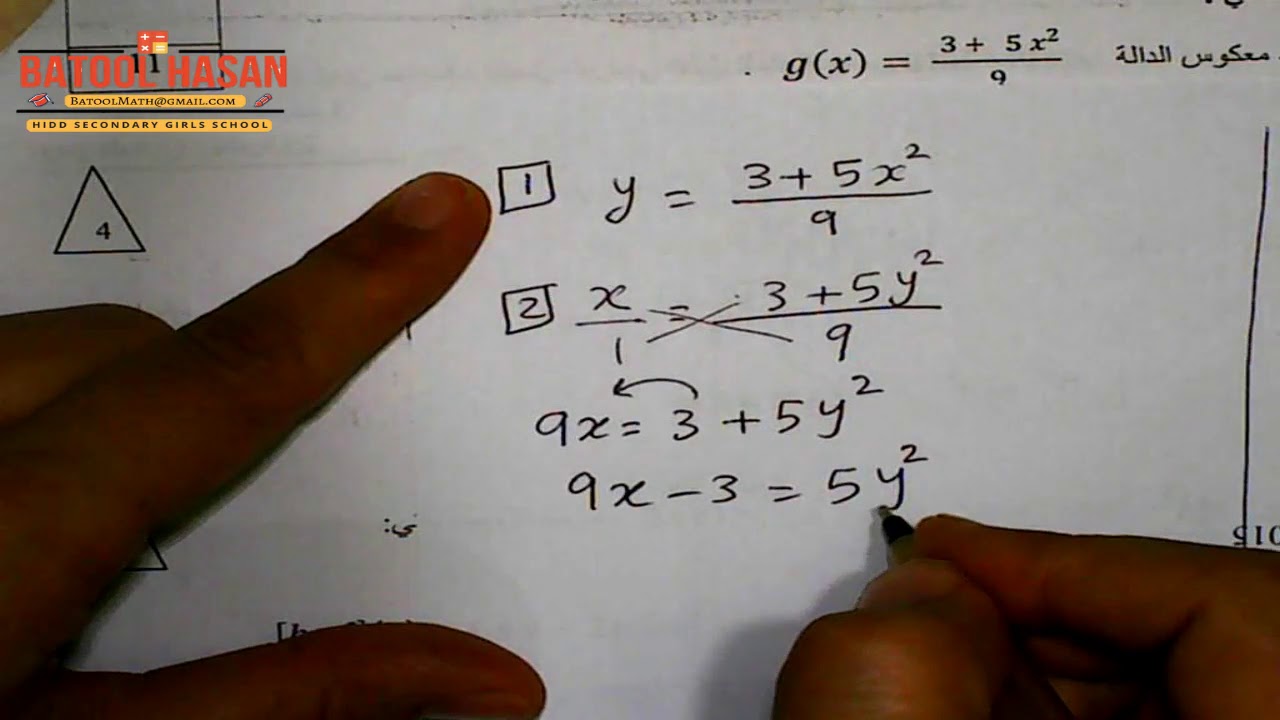 11
BATOOL HASAN
BatoolMath@gmail.com
HIDD SECONDARY GIRLS SCHOOL
معكوس الدالة g(x) = (3 + 5x²)/9 .
4
1 y = (3 + 5x²)/9
2 x/1 = (3 + 5y²)/9
9x = 3 + 5y²
9x − 3 = 5y²
ني: